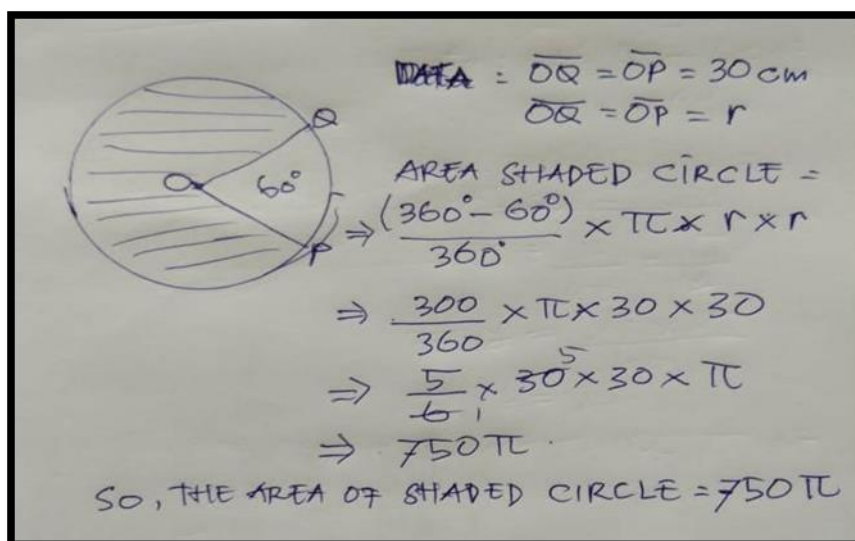 DATA : OQ = OP = 30 cm
OQ = OP = r
Q
O 60°
P
AREA SHADED CIRCLE =
⇒ (360° - 60°) / 360° × π × r × r
⇒ 300 / 360 × π × 30 × 30
⇒ 5 / 6 1 × 30 5 × 30 × π
⇒ 750 π.
SO, THE AREA OF SHADED CIRCLE = 750 π